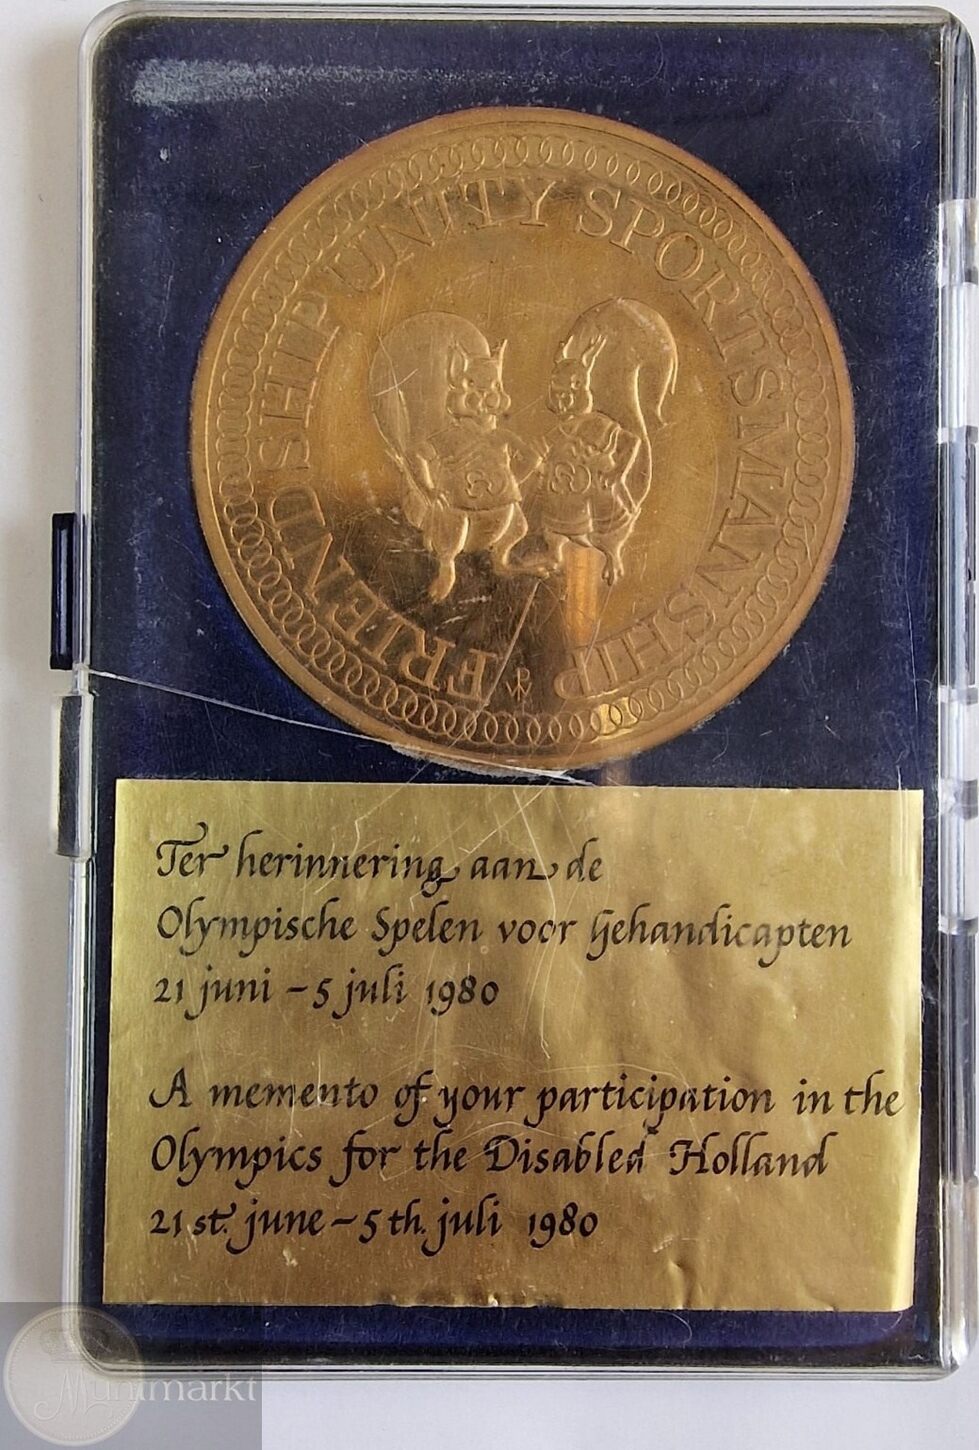 FRIENDSHIP UNITY SPORTSMANSHIP
Ter herinnering aan de
Olympische Spelen voor Gehandicapten
21 juni – 5 juli 1980
A memento of your participation in the
Olympics for the Disabled Holland
21 st. june – 5 th. juli 1980
Muntmarkt